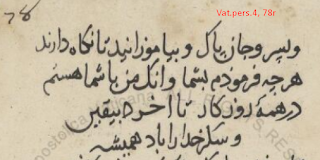 78
Vat.pers.4, 78r
و پسر و جان پاک و بیاموزانید تا نکاه دارند
هر چه فرمودم بشما و انک من با شما هستم
در همهٔ روزکار تا اخر بیقین
و سکر خدا را باد همیشه